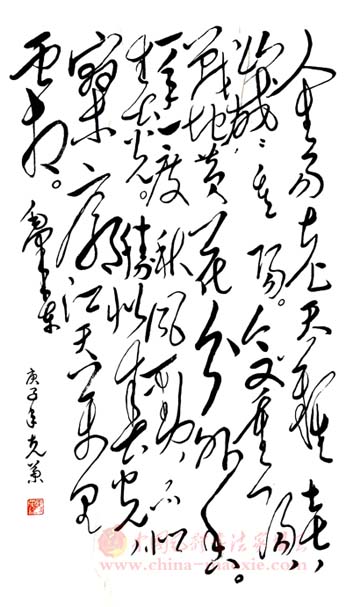 人生易老天难老,
岁岁重阳。今又重阳,
战地黄花分外香。
一年一度秋风劲,不似
春光。胜似春光
寥廓江天万里
霜。毛泽东
庚子年克
www.china-maoxie.com